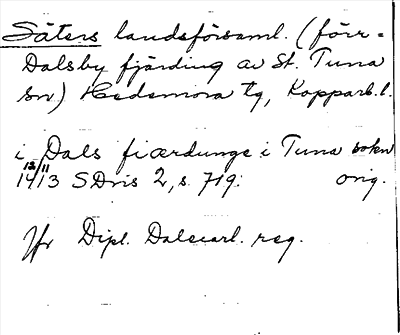 Säters landsförsaml. (förr =
Dalsby fjärding av St. Tuna
sn) Hedemora tg, Kopparb. l.
i Dals fiærdunge i Tuna sokn
12/11 1413 SDns 2, s. 719. orig.
Jfr Dipl. Dalecarl. reg.